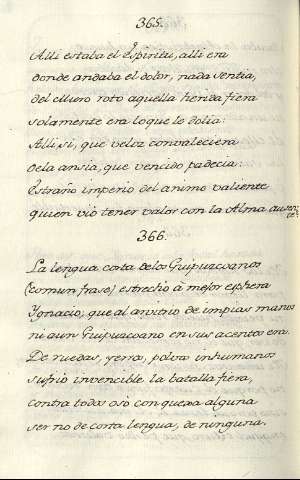 365.
Alli estaba el Espiritu, alli era
donde andaba el dolor, nada sentia,
del hueso roto aquella herida fiera
solamente era lo que le dolia:
Alli si, que veloz convaleciera
dela ansia, que vencido padecia:
Estraño imperio del animo valiente
quien vió tener valor con la Alma ausente.
366.
La lengua corta de los Guipuzcoanos
(comun frase) estrechó á mejor esphera
Ygnacio, que al arvitrio de impias manos
ni aun Guipuzcoano en sus acentos era.
De ruedas, yerros, polvos inhumanos
sufrio invencible la batalla fiera,
contra todos osó con quexa alguna
ser no de corta lengua, de ninguna.